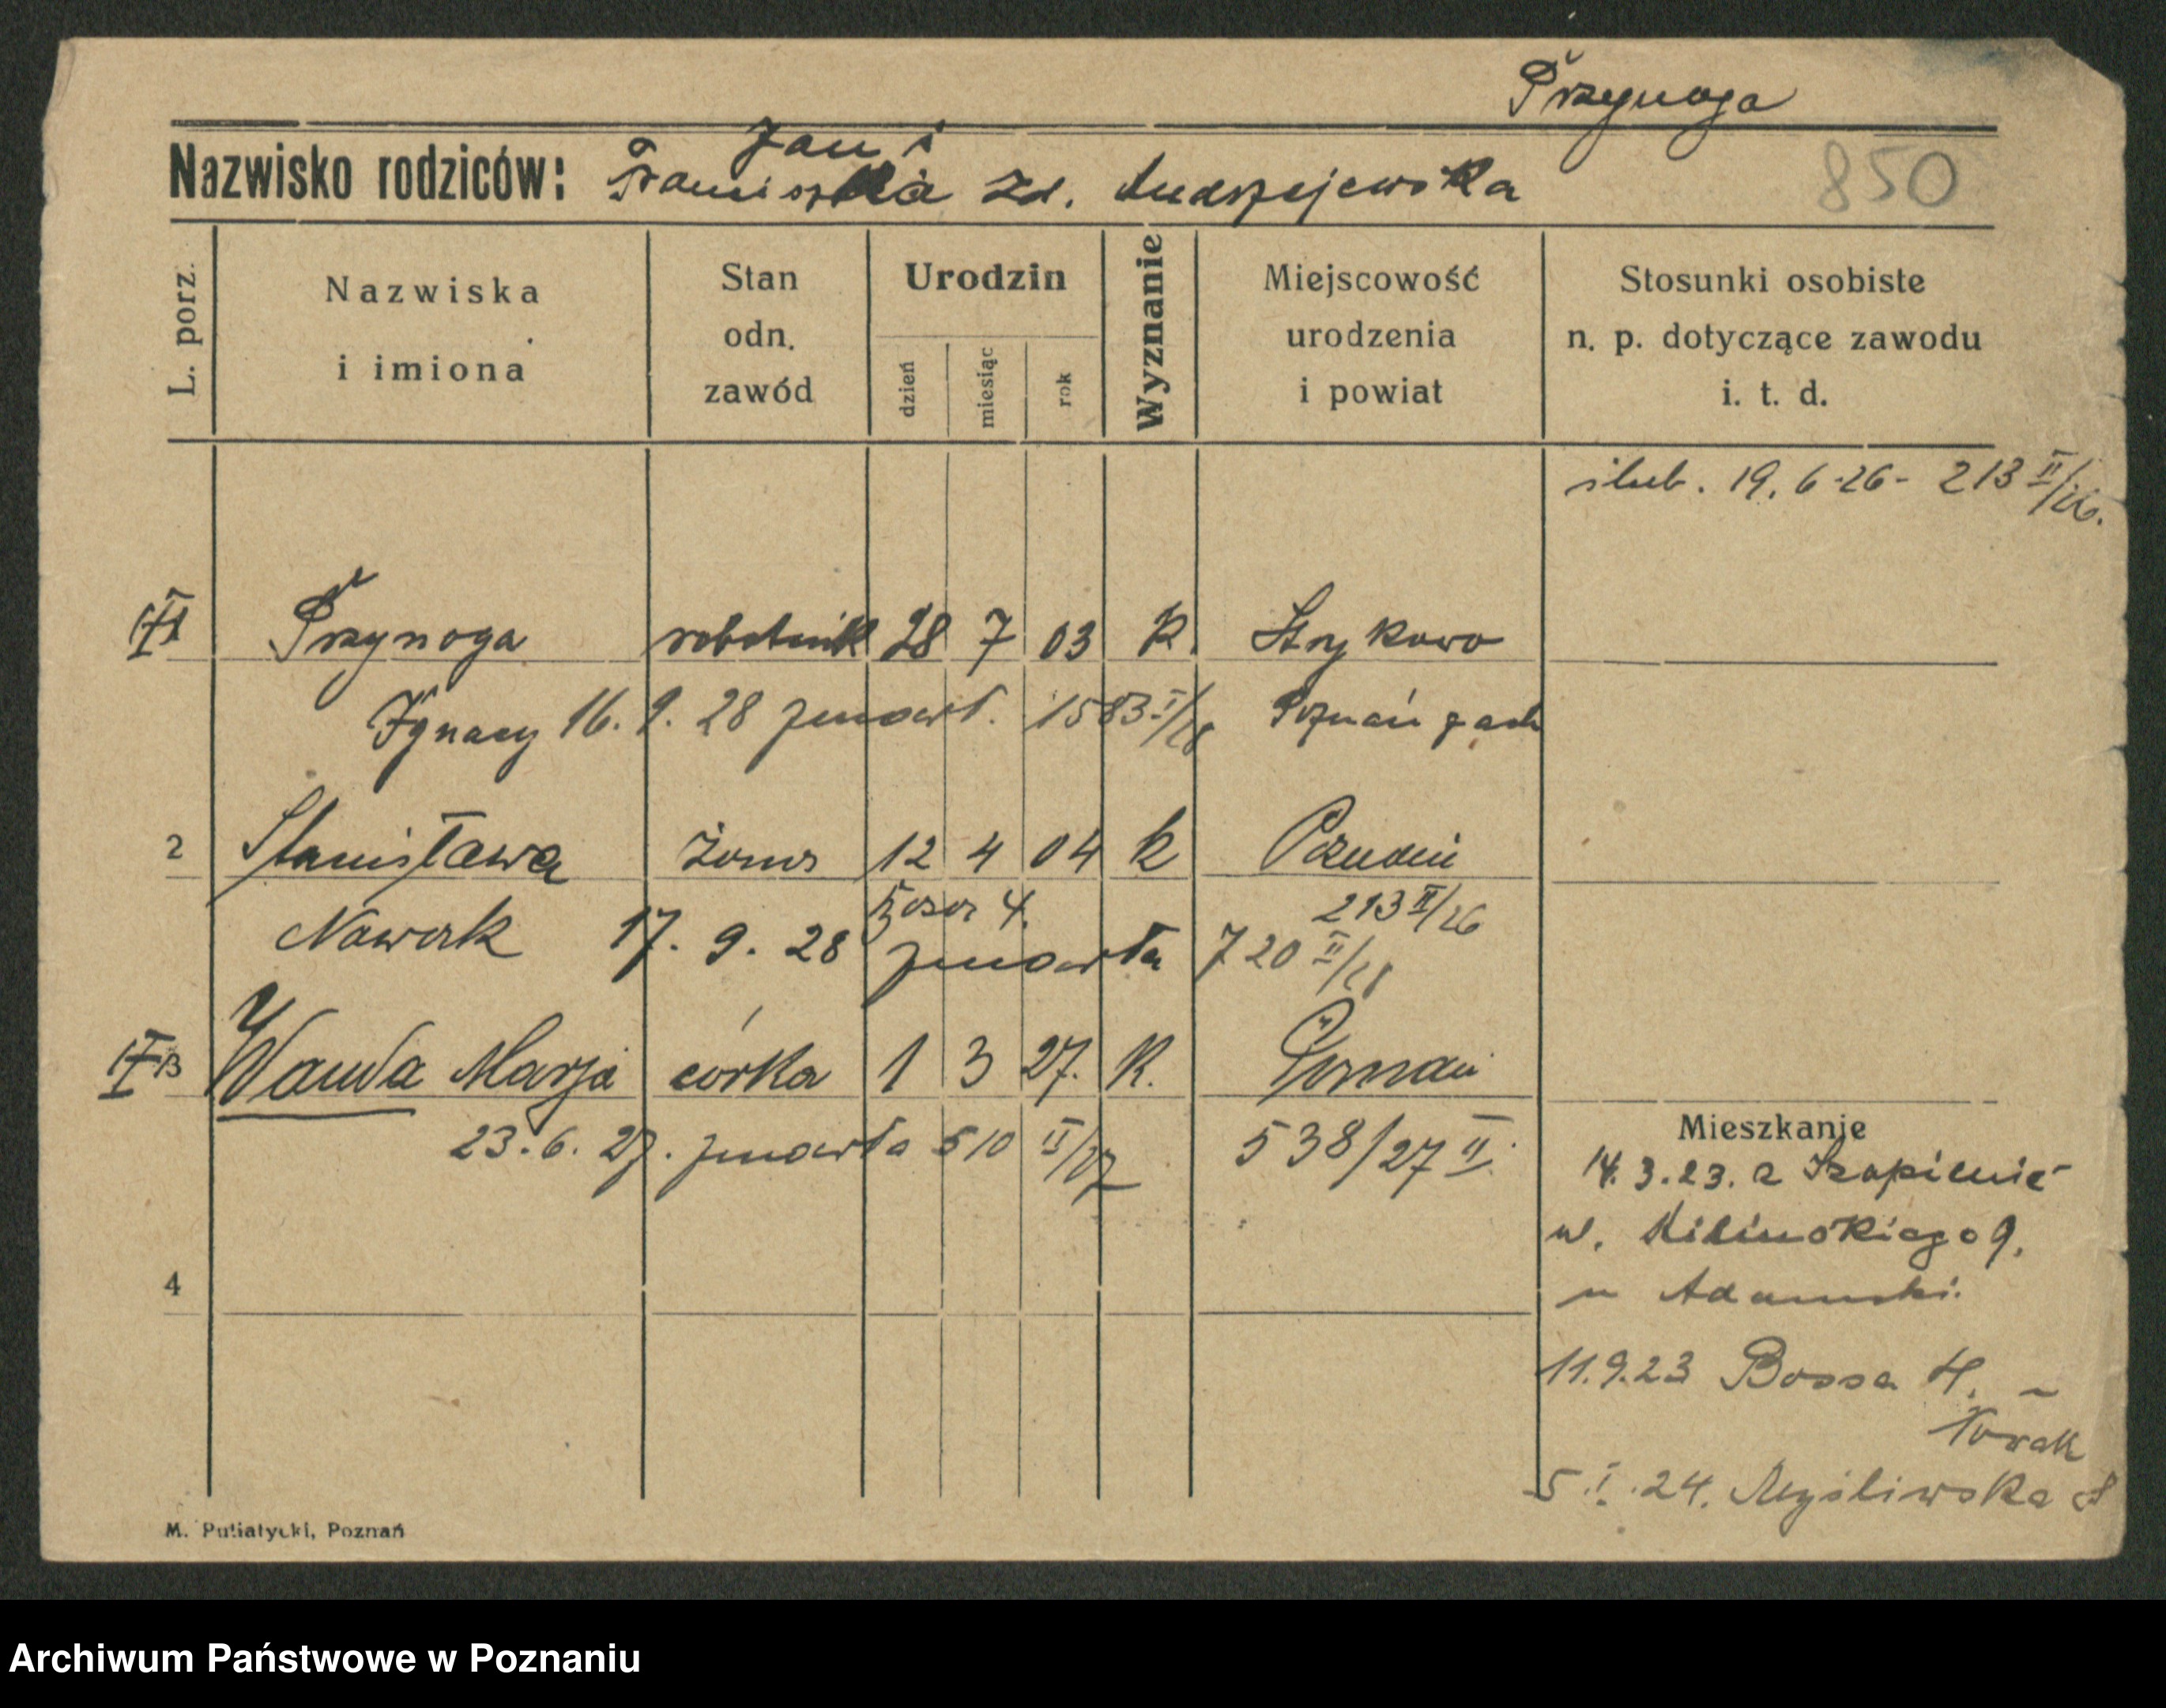 Przynoga
Jan i
Nazwisko rodziców: Franciszka zd. Andrzejewska
850
L. porz.
Nazwiska
i imiona
Stan
odn.
zawód
Urodzin
dzień
miesiąc
rok
Wyznanie
Miejscowość
urodzenia
i powiat
Stosunki osobiste
n. p. dotyczące zawodu
i. t. d.
ślub. 19. 6. 26 - 213 II/26.
Przynoga robotnik 28 7 03 K. Strykowo
Ignacy 16. 9. 28 zmarł. 1583 I/28 Poznań zach
2 Stanisława żona 12 4 04 K Poznań
Bosa 4. 213 II/26
Nowak 17. 9. 28 zmarła 720 II/28
Wanda Marja córka 1 3 27. K. Poznań
23. 6. 27. zmarła 510 II/27 538/27 II.
Mieszkanie
14. 3. 23. z
ul. Kilińskiego 9.
u Adamski.
4
11.9.23 Bossa 4. u
Nowak
5. I. 24. Myśliwska
M. Putiatycki, Poznań
Archiwum Państwowe w Poznaniu